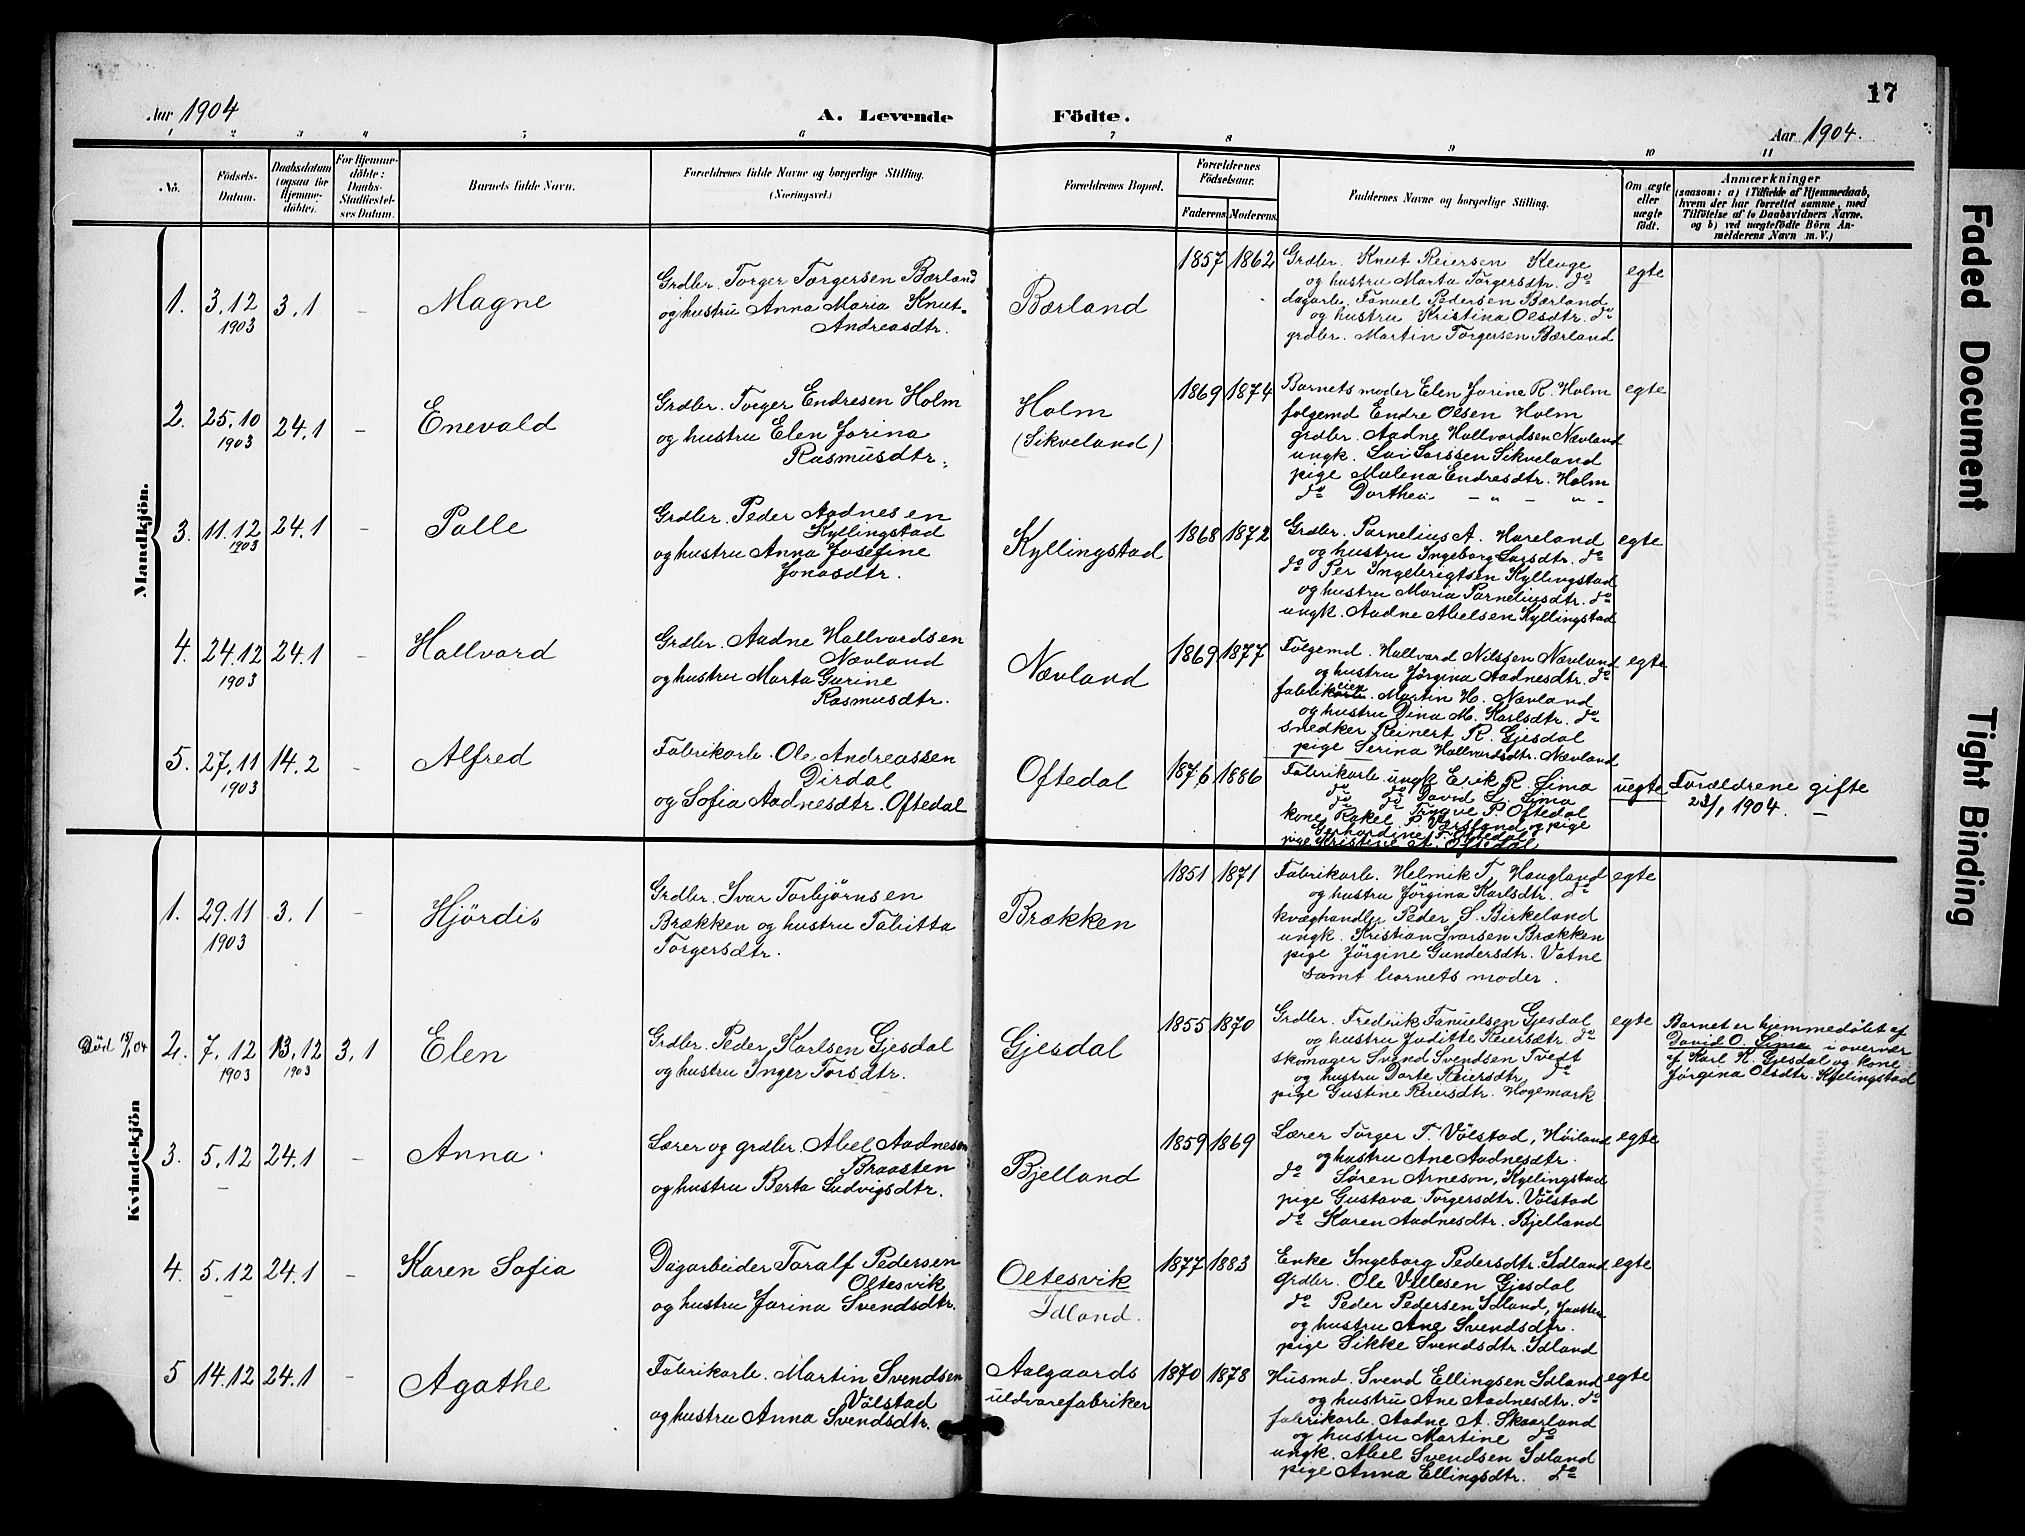 17
Aar 1904
A. Levende Födte.
Aar 1904.
1 2 3 4 5 6 7 8 9 10 11
No.
Födsels-Datum.
Daabsdatum (ogsaa for Hjemmedöbte).
For Hjemmedöbte: Daabs-Stadfæstelses Datum.
Barnets fulde Navn.
Forældrenes fulde Navne og borgerlige Stilling.
(Næringsvei.)
Forældrenes Bopæl.
Forældrenes Födselsaar.
Faderens. Moderens.
Faddernes Navne og borgerlige Stilling.
Om ægte eller uægte födt.
Anmærkninger
(saasom: a) i Tilfælde af Hjemmedaab,
hvem der har forrettet samme, med
Tilföielse af to Daabsvidners Navne.
og b) ved uægtefödte Börn An-
melderens Navn m. V.)
Mandkjön.
1. 3.12 1903 3.1 - Magne
Grdbr. Torger Torgersen Bærland
og hustru Anna Maria Knut-
Andreasdtr.
Bærland
1857 1862
Grdbr. Knut Reiersen Kluge
og hustru Marta Torgersdtr. do
dagarb. Fanuel Pedersen Bærland
og hustru Kristina Olsdtr. do
grdbr. Martin Torgersen Bærland
egte
2. 25.10 1903 24.1 - Enevald
Grdbr. Torger Endresen Holm
og hustru Elen Jorina
Rasmusdtr.
Holm
(Sikveland)
1869 1874
Barnets moder Elen Jorine R. Holm
folgemd Endre Olsen Holm
grdbr. Aadne Hallvardsen Nævland
ungk. Lai Larssen Sikveland
pige Malena Endresdtr. Holm
do Dorthea - " - " -
egte
3. 11.12 1903 24.1 - Palle
Grdbr. Peder Aadnesen
Kyllingstad
og hustru Anna Josefine
Jonasdtr.
Kyllingstad
1868 1872
Grdbr. Parnelius A. Hareland
og hustru Ingeborg Larsdtr. do
do Per Ingebrigtsen Kyllingstad
og hustru Maria Parneliusdtr. do
ungk. Aadne Abelsen Kyllingstad
egte
4. 24.12 1903 24.1 - Hallvard
Grdbr. Aadne Hallvardsen
Nævland
og hustru Marta Gurine
Rasmusdtr.
Nævland
1869 1877
Folgemd. Hallvard Nilssen Nævland
og hustru Jörgina Aadnesdtr. do
fabrikeier. Martin H. Nævland
og hustru Dina M. Karlsdtr. do
snedker Reinert R. Gjesdal
pige Serina Hallvardsdtr. Nævland
egte
5. 27.11 1903 14.2 - Alfred
Fabrikarb. Ole Andreassen
Dirdal
og Sofia Aadnesdtr. Oftedal
Oftedal
1876 1886
Fabrikarb. ungk Erik R. Lima
do do David L. Lima
do do Tarve P. Oftedal
kone Rakel P. Versland og pige
Gerhardine T. Oftedal
pige Kristine A. Oftedal
uegte
Forældrene gifte
23/1 1904. -
Kvindekjön
1. 29.11 1903 3.1 - Hjördis
Grdbr. Ivar Torbjörnsen
Brækken og hustru Tabitta
Torgersdtr.
Brækken
1851 1871
Fabrikarb. Helmik T. Haugland
og hustru Jörgina Karlsdtr. do
kvæghandler Peder S. Birkeland
ungk. Kristian Ivarsen Brækken
pige Jörgine Gundersdtr. Vatne
samt barnets moder.
egte
Död 15/1 04 2. 7.12 1903 13.12 1903 3.1 Elen
Grdbr. Peder Karlsen Gjesdal
og hustru Inger Torsdtr.
Gjesdal
1855 1870
Grdbr. Fredrik Fanuelsen Gjesdal
og hustru Juditte Reiersdtr. do
skomager Svend Svendsen Tvedt
og hustru Dorte Reiersdtr. do
pige Gustine Reiersdtr. Hogemark
egte
Barnet er hjemmedöbt af
David O. Lima i overvær
af Karl K. Gjesdal og kone
Jörgina Olsdtr. Kyllingstad
3. 5.12 - 24.1 - Anna
Lærer og grdbr. Abel Aadnesen
Braasten
og hustru Berta Ludvigsdtr.
Bjelland
1859 1869
Lærer Torger T. Völstad, Höiland
og hustru Ane Aadnesdtr.
do Sören Arneson, Kyllingstad
pige Gustava Torgersdtr. Völstad
do Karen Aadnesdtr. Bjelland
egte
4. 5.12 - 24.1 - Karen Sofia
Dagarbeider Toralf Pedersen
Oltesvik
og hustru Jorina Svendsdtr.
Oltesvik
Idland.
1877 1883
Enke Ingeborg Pedersdtr. Idland
grdbr. Ole Villesen Gjesdal
do Peder Pedersen Idland, Jaatten
og hustru Ane Svendsdtr.
pige Sikke Svendsdtr. Idland
egte
5 14.12 24.1 - Agathe
Fabrikarb. Martin Svendsen
Völstad
og hustru Anna Svendsdtr.
Aalgaards
uldvarefabriker
1870 1878
Husmd. Svend Ellingsen Idland
og hustru Ane Aadnesdtr. do
fabrikarb. Aadne A. Skaarland
og hustru Martine do
ungk. Abel Svendsen Idland
pige Anna Ellingsdtr. do
egte
Faded Document
Tight Binding